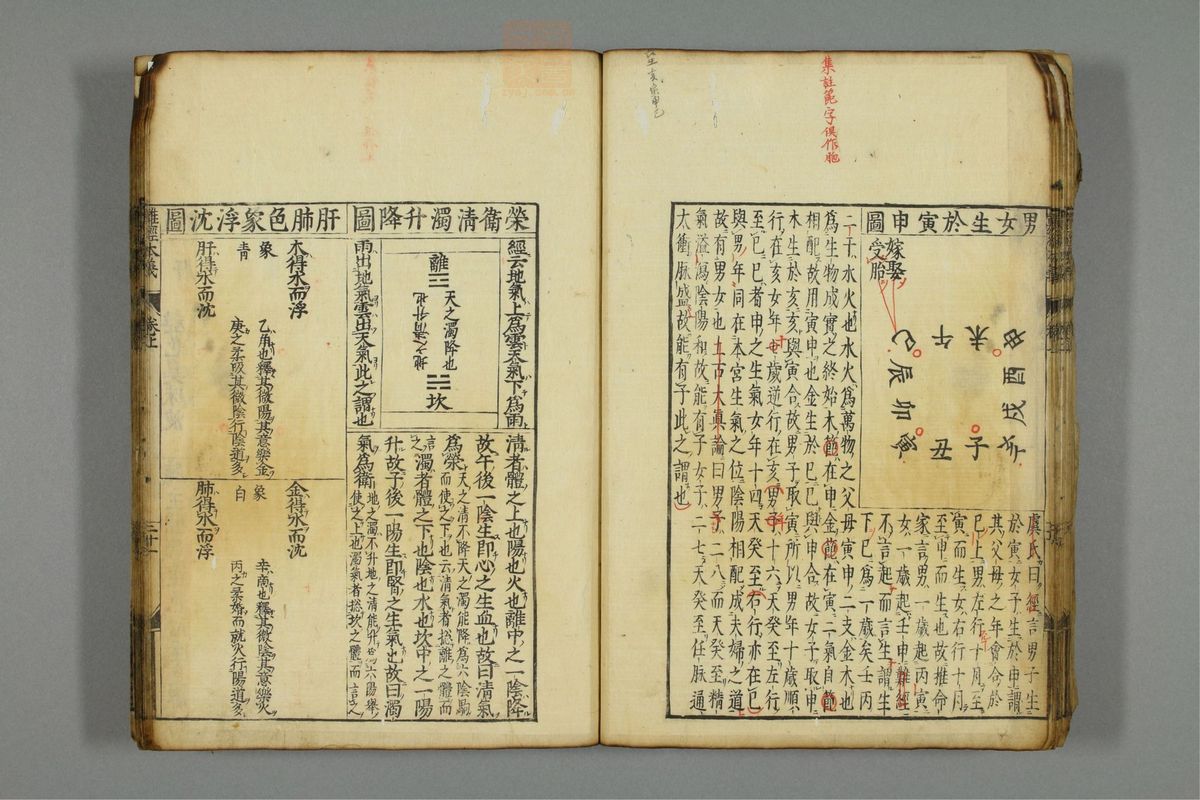 集註範字俱作胞
男女生於寅申圖
嫁娶
受胎
巳
午
未
申
辰
酉
卯
戌
寅
丑
子
亥
虞氏曰經言男子生
於寅女子生於申謂
其父母之年會合於
巳上男左行十月至
寅而生女右行十月
至申而生也故推命
家言男一歲起丙寅
女一歲起壬申難經
不言起而言生謂生
下已爲一歲矣壬丙
二干水火也水火爲萬物之父母寅申二支金木也
爲生物成實之終始木節在申金節在寅二氣自節
相配故用寅申也金生於巳巳與申合故女子取申
木生於亥亥與寅合故男子取寅所以男年十歲順
行在亥女年十歲逆行在亥男子十六天癸至左行
至巳巳者申之生氣女年十四天癸至右行亦在巳
與男年同在本宮生氣之位陰陽相配成夫婦之道
故有男女也上古天眞論曰男子二八而天癸至精
氣溢瀉陰陽和故能有子女子二七天癸至任脈通
太衝脈盛故能有子此之謂也
榮衛清濁升降圖
經云地氣上爲雲天氣下爲雨
離
天之濁降也
坎
雨出地氣雲出天氣此之謂也
清者體之上也陽也火也離中之一陰降
故午後一陰生即心之生血也故曰清氣
爲榮
濁者體之下也陰也水也坎中之一陽
升故子後一陽生即腎之生氣也故曰濁
氣爲衛
肝肺色象浮沈圖
木得水而浮
象
青
肝得水而沈
乙角也釋其微陽其意樂金
庚之柔吸其微陰行陰道多
金得水而沈
象
白
肺得水而浮
辛商也釋其微陰其意樂火
丙之柔婚而就火行陽道多